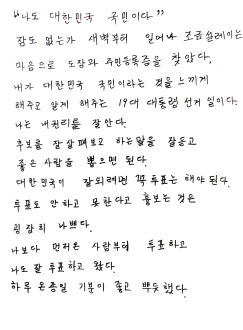 "나도 대한민국 국민이다"
잠도 없는가 새벽부터 일어나 조금설레이는
마음으로 도장과 주민등록증을 찾았다.
내가 대한민국 국민이라는 것을 느끼게
해주고 알게 해주는 19대 대통령 선거 일이다.
나는 내권리를 잘안다.
후보를 잘 살펴보고 하는말을 잘듣고
좋은 사람을 뽑으면 된다.
대한민국이 잘되려면 꼭 투표는 해야 된다.
투표도 안하고 못한다고 흉보는 것은
굉장히 나쁘다.
나보다 먼저온 사람부터 투표하고
나도 잘 투표하고 왔다.
하루 온종일 기분이 좋고 뿌듯했다.